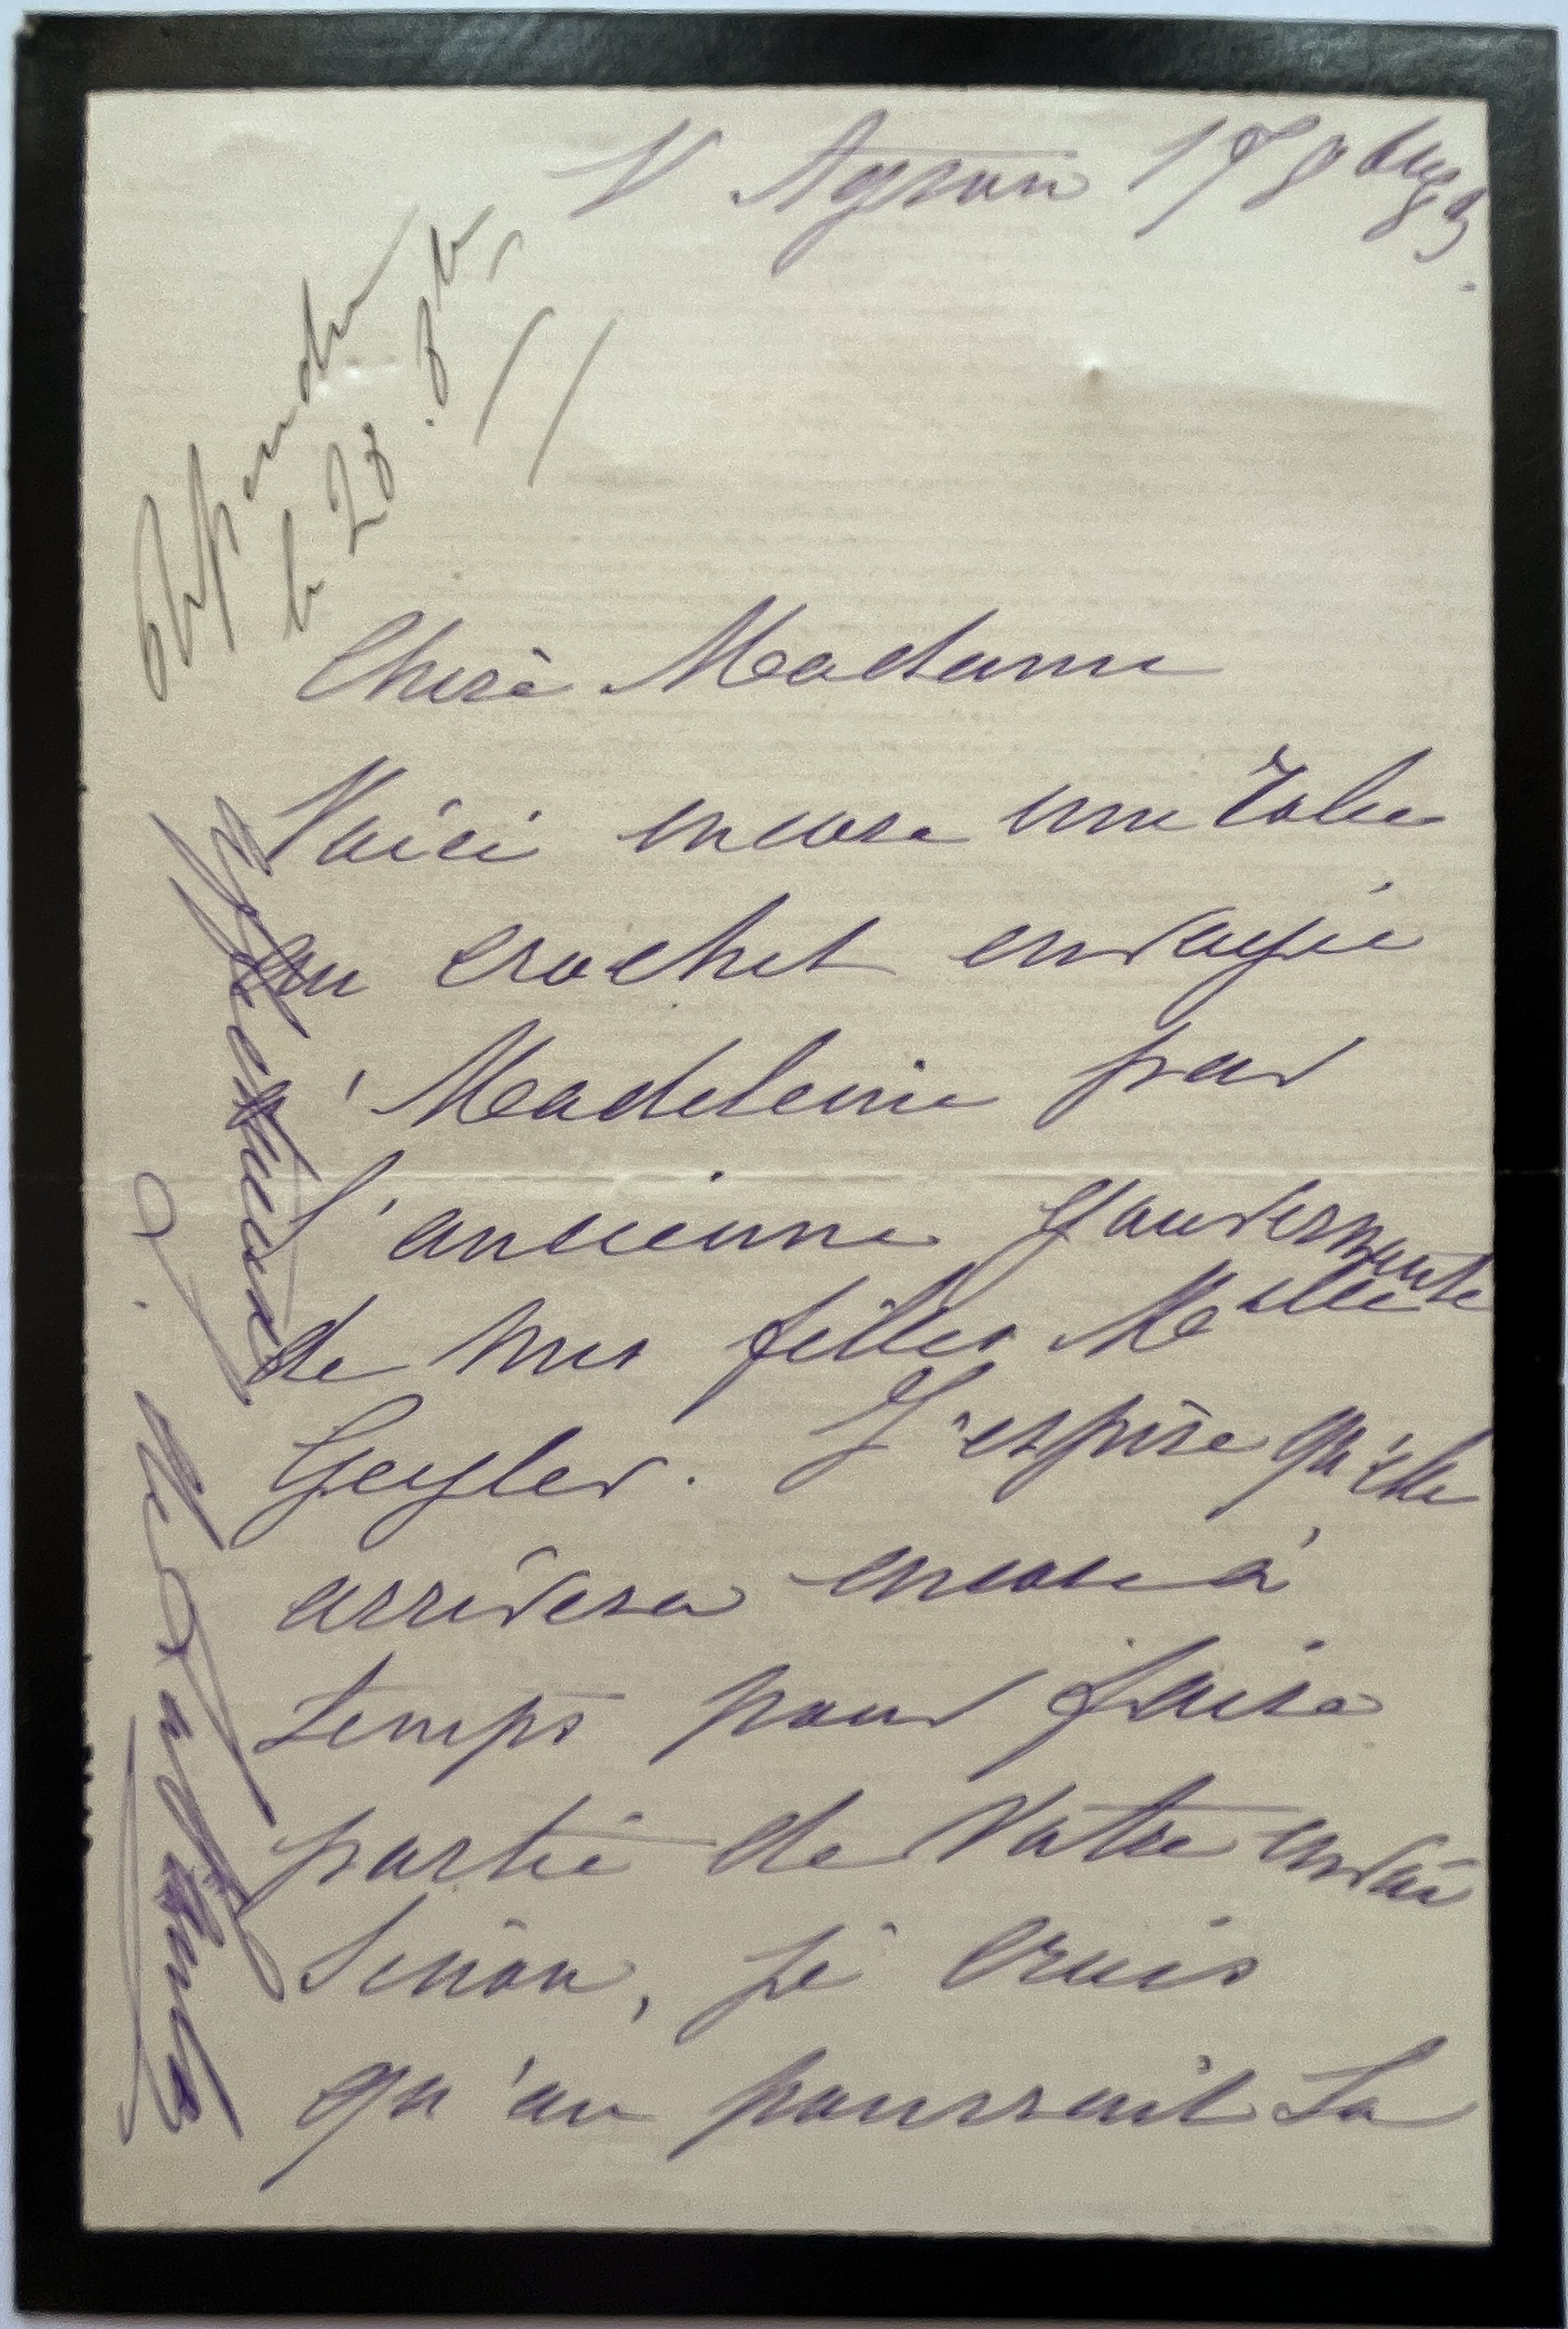 V Agron 17 8bre 83.
Répondu
le 28 . 8bre
Chère Madame
Voici encore une robe
au crochet envoyée
à Madeleine par
l'ancienne gouvernante
de mes filles Melle
Geyler. J'espère qu'elle
arrivera encore à
temps pour faire
partie de votre envoi
Sinon, je crois
qu'on pourrait la